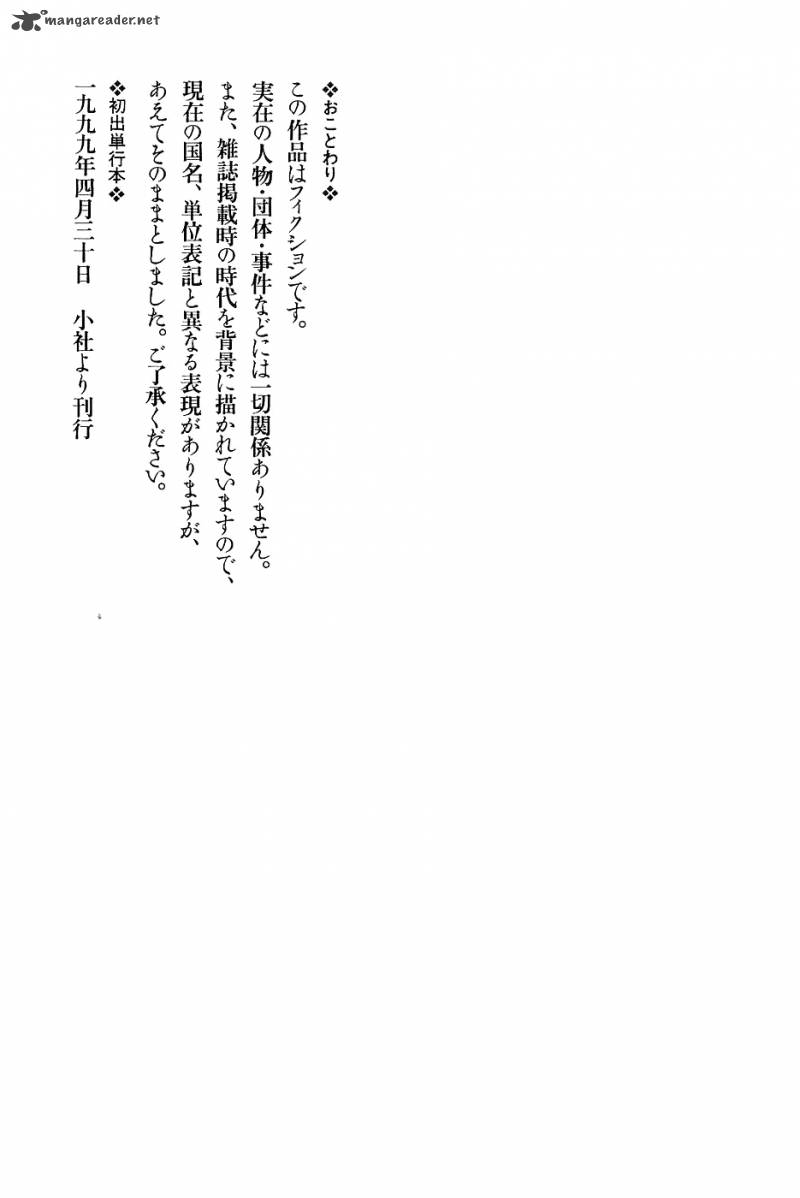 mangareader.net
❖おことわり❖
この作品はフィクションです。
実在の人物・団体・事件などには一切関係ありません。
また、雑誌掲載時の時代を背景に描かれていますので、
現在の国名、単位表記と異なる表現がありますが、
あえてそのままとしました。ご了承ください。
❖初出単行本❖
一九九九年四月三十日　小社より刊行